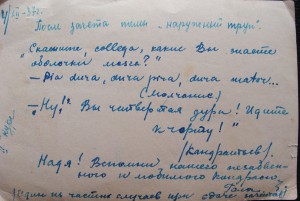 4/VI-38г.
После зачета темы "наружный труп".
"Скажите, collega, какие Вы знаете
оболочки мозга?"
– Dia dura, dura pia, dura mater...
(Молчание)
– "Ну,!? Вы четвертая дура! Идите
к чорту!"
(Кандратьев).
Надя! Вспомни нашего незабвен-
ного и любимого Кондрат.
(Один из частых случаев при сдаче